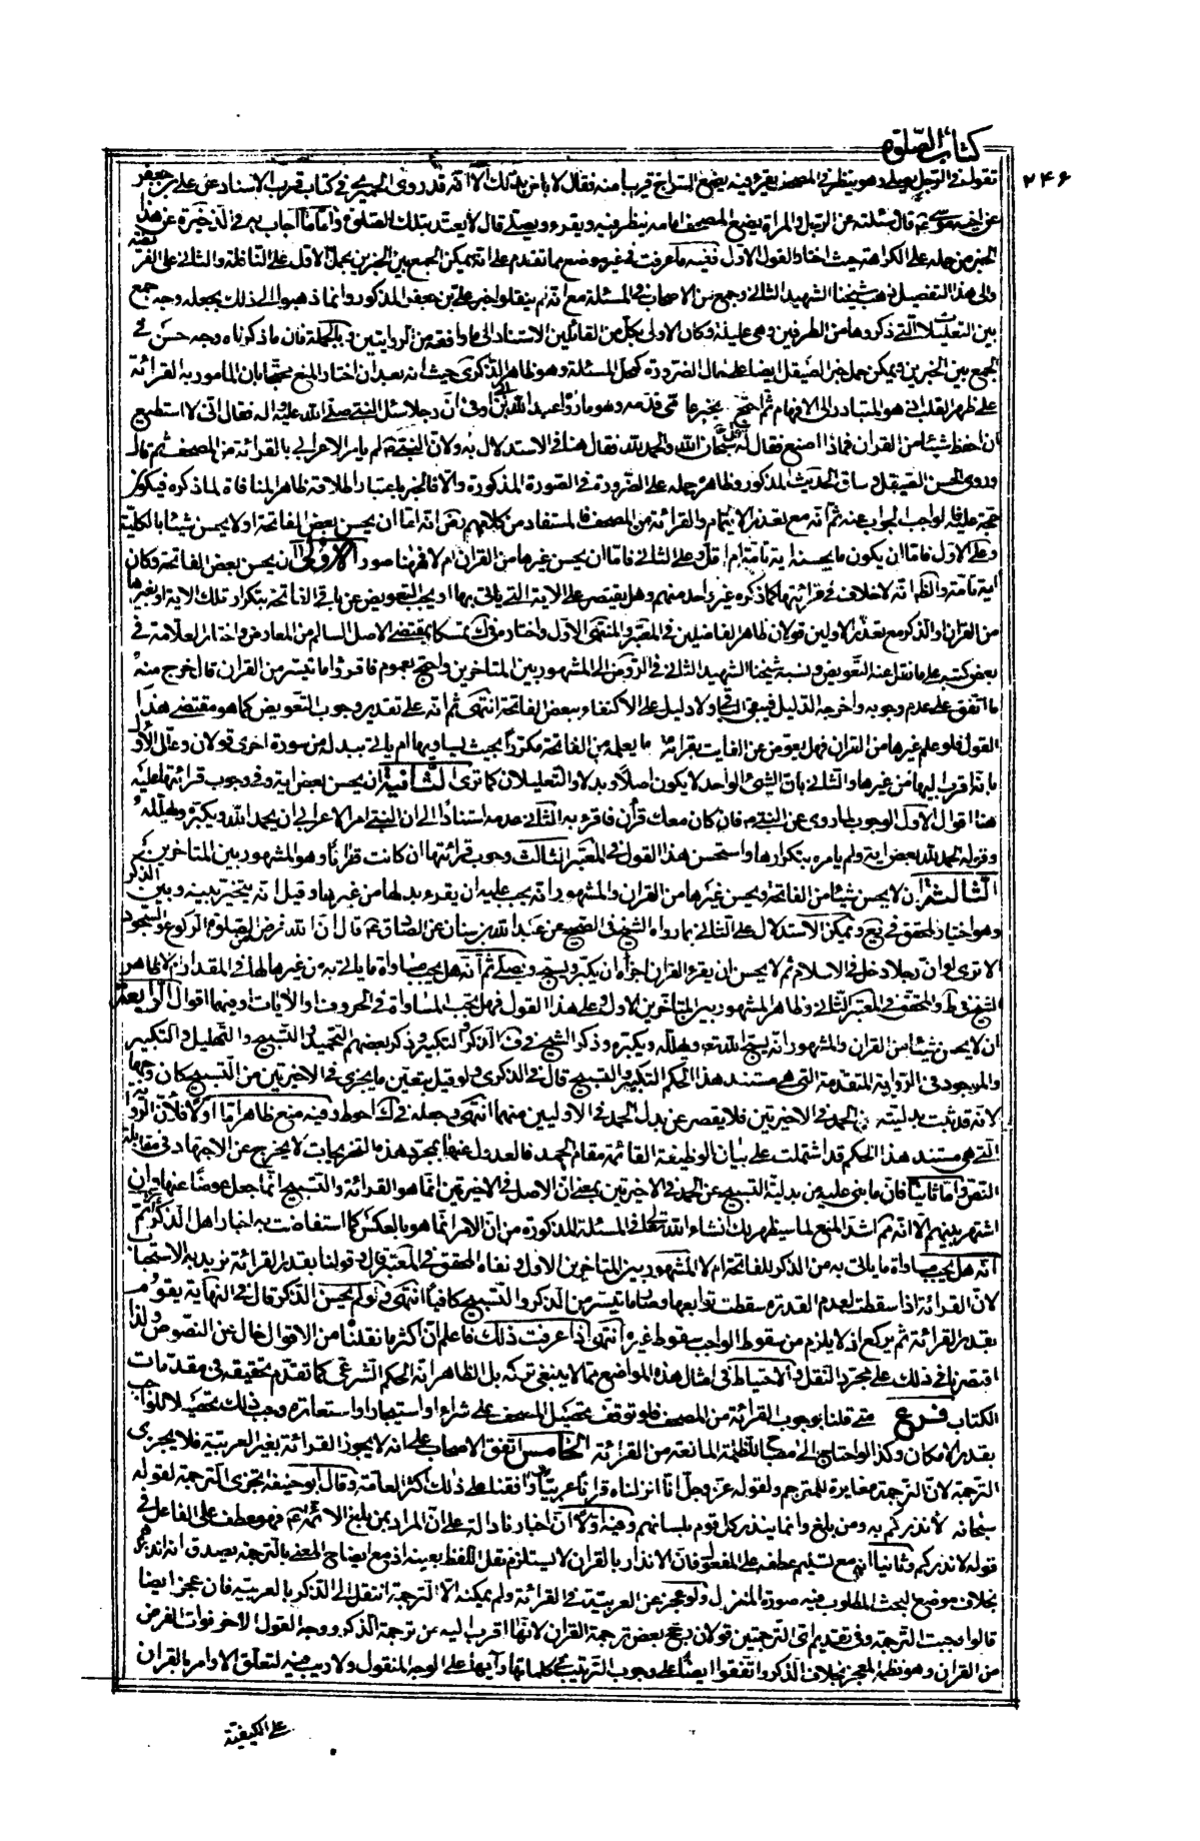 كتاب الصلوة
٢۴۶
تقول في الرجل يصلى وهو ينظر في المصحف يقرء فيه يضع السراج قريبا منه فقال لا باس بذلك الا انه قد روى الحميرى في كتاب قرب الاسناد عن على بن جعفر
عن اخيه موسى ع قال سئلته عن الرجل والمراة يضع المصحف امامه ينظر فيه ويقرء ويصلى قال لا يعتد بتلك الصلوة واما ما اجاب به في الذخيرة عن هذا
الخبر من حمله على الكراهة حيث اختار القول الاول ففيه ما عرفت في غير موضع مما تقدم على انه يمكن الجمع بين الخبرين بحمل الاول على النافلة والثاني على الفريضة
والى هذا التفصيل ذهب شيخنا الشهيد الثاني وجمع من الاصحاب في المسئلة مع انهم لم ينقلوا خبر على بن جعفر المذكور وانما ذهبوا الى ذلك بجعله وجه جمع
بين التعليلات التي ذكروها من الطرفين وهى عليلة وكان الاولى بكل من القائلين الاستناد الى ما وافقه من الروايتين وبالجملة فان ما ذكرناه وجه حسن في
الجمع بين الخبرين ويمكن حمل خبر الصيقل ايضا على حال الضرورة كمحل المسئلة وهو ظاهر الذكرى حيث انه بعد ان اختار المنع محتجا بان المامور به القرائة
على ظهر القلب اذ هو المتبادر الى الافهام ثم احتج بخبر عامى قدمه وهو ما رواه عبد الله بن ابى اوفى ان رجلا سئل النبي صلى الله عليه واله فقال انى لا استطيع
ان احفظ شيئا من القران فماذا اصنع فقال له قل سبحان الله والحمد لله فقال هنا في الاستدلال به ولان النبي ص لم يامر الاعرابى بالقرائة من المصحف ثم قال
وروى الحسن الصيقل وساق الحديث المذكور وظاهره حمله على الضرورة في الصورة المذكورة والا فالخبر باعتبار اطلاقه ظاهر المنافاة لما ذكره فيكون
حجة عليه فالواجب الجواب عنه ثم انه مع تعذر الايتمام والقرائة من المصحف فالمستفاد من كلامهم رض انه اما ان يحسن بعض الفاتحة او لا يحسن شيئا بالكلية
وعلى الاول فاما ان يكون ما يحسنه اية تامة ام اقل وعلى الثاني فاما ان يحسن غيرها من القران ام لا فهنا صور الاولى ان يحسن بعض الفاتحة وكان
اية تامة والظ انه لا خلاف في قرائتها كما ذكره غير واحد منهم وهل يقتصر على الاية التي ياتى بها او يجب التعويض عن باقى الفاتحة بتكرار تلك الاية او بغيرها
من القران او الذكر مع تعذر الاولين قولان ظاهر الفاضلين في المعتبر والمنتهى الاول واختاره في ك تمسكا بمقتضى الاصل السالم من المعارض واختار العلامة في
بعض كتبه على ما نقل عنه التعويض ونسبه شيخنا الشهيد الثاني في الروض الى المشهور بين المتاخرين واحتج بعموم فاقرؤا ما تيسر من القران فما اخرج منه
ما اتفق على عدم وجوبه واخرجه الدليل فيبقى الباقى ولا دليل على الاكتفاء ببعض الفاتحة انتهى ثم انه على تقدير وجوب التعويض كما هو مقتضى هذا
القول فلو علم غيرها من القران فهل يعوض عن الفايت بقرائة ما يعلمه من الفاتحة مكررا بحيث يساويها ام ياتى ببدله من سورة اخرى قولان وعلل الاول
بانه اقرب اليها من غيرها والثاني بان الشيئ الواحد لا يكون اصلا وبدلا والتعليلان كما ترى الثانية ان يحسن بعض اية وفى وجوب قرائتها عليه
هنا اقوال الاول الوجوب لما روى عن النبي ص فان كان معك قران فاقرء به الثاني عدمه استنادا الى ان النبي امر الاعرابى ان يحمد الله ويكبره ويهلله
وقوله الحمد لله بعض اية ولم يامره بتكرارها واستحسن هذا القول في المعتبر الثالث وجوب قرائتها ان كانت قرانا وهو المشهور بين المتاخرين
الثالثة ان لا يحسن شيئا من الفاتحة ويحسن غيرها من القران والمشهور انه يجب عليه ان يقرء بدلها من غيرها وقيل انه يتخير بينه وبين الذكر
وهو اختيار المحقق في يع ويمكن الاستدلال على الثاني بما رواه الشيخ في الصحيح عن عبد الله بن سنان عن الصادق ع قال ان الله فرض من الصلوة الركوع والسجود
الا ترى لو ان رجلا دخل في الاسلام ثم لا يحسن ان يقرء القران اجزاه ان يكبر ويسبح ويصلى ثم انه هل يجب مساواة ما ياتى به من غيرها لها في المقدار ام لا ظاهر
الشيخ في ط والمحقق في المعتبر الثاني وظاهر المشهور بين المتاخرين الاول وعلى هذا القول فهل يجب المساواة في الحروف او الايات او فيهما اقوال الرابعة
ان لا يحسن شيئا من القران والمشهور انه يسبح الله تعالى ويهلله ويكبره وذكر الشيخ في ف الذكر والتكبير وذكر بعضهم التحميد والتسبيح والتهليل والتكبير
والموجود في الرواية المتقدمة التي هى مستند هذا الحكم التكبير والتسبيح قال في الذكرى ولو قيل بتعين ما يجزى في الاخيرتين من التسبيح كان وجها
لانه قد ثبت بدليته عن الحمد في الاخيرتين فلا يقصر عن بدل الحمد في الاوليين منهما انتهى وجعله في ك احوط وفيه منع ظاهر اما اولا فلان الرواية
التي هى مستند هذا الحكم قد اشتملت على بيان الوظيفة القائمة مقام الحمد فالعدول عنها بمجرد هذه التخريجات لا يخرج عن الاجتهاد في مقابلة
النص واما ثانيا فان ما بنى عليه من بدلية التسبيح عن الحمد في الاخيرتين بمعنى ان الاصل في الاخيرتين انما هو القرائة والتسبيح انما جعل عوضا عنها وان
اشتهر بينهم الا انه ثم اشد المنع لما سيظهر لك انشاء الله تعالى في المسئلة المذكورة من ان الامر انما هو بالعكس كما استفاضت به اخبار اهل الذكر ثم
انه هل يجب مساواة ما ياتى به من الذكر للفاتحة ام لا المشهور بين المتاخرين الاول ونفاه المحقق في المعتبر قال وقولنا بقدر القرائة نريد به الاستحباب
لان القرائة اذا سقطت لعدم القدرة سقطت توابعها وصار ما تيسر من الذكر والتسبيح كافيا انتهى ولو لم يحسن الذكر قال في النهاية يقوم
بقدر القرائة ثم يركع اذ لا يلزم من سقوط الواجب سقوط غيره انتهى اذا عرفت ذلك فاعلم ان اكثر ما نقلنا من الاقوال خال عن النصوص ولذا
اقتصرنا في ذلك على مجرد النقل والاحتياط في امثال هذه المواضع مما لا ينبغى تركه بل الظاهر انه الحكم الشرعى كما تقدم تحقيقه في مقدمات
الكتاب فرع متى قلنا بوجوب القرائة من المصحف فلو توقف تحصيل المصحف على شراء او استيجار او استعارة وجب ذلك تحصيلا للواجب
بقدر الامكان وكذا لو احتاج الى مصباح للظلمة المانعة من القرائة الخامس اتفق الاصحاب على انه لا يجوز القرائة بغير العربية فلا يجزى
الترجمة لان الترجمة مغايرة للمترجم ولقوله عز وجل انا انزلناه قرانا عربيا ووافقنا على ذلك اكثر العامة وقال ابو حنيفة تجزى الترجمة لقوله
سبحانه لانذركم به ومن بلغ وانما ينذر كل قوم بلسانهم وفيه اولا ان اخبارنا دالة على ان المراد بمن بلغ الائمة ع فهو عطف على الفاعل في
قوله لانذركم وثانيا انه مع تسليم عطفه على المفعول فان الانذار بالقران لا يستلزم نقل اللفظ بعينه اذ مع ايضاح المعنى بالترجمة يصدق انه انذرهم
بخلاف موضع البحث المطلوب فيه صورة المنزل ولو عجز عن العربية في القرائة ولم يمكنه الا الترجمة انتقل الى الذكر بالعربية فان عجز ايضا
قالوا وجبت الترجمة وفى تقديم اى الترجمتين قولان رجح بعض ترجمة القران لانها اقرب اليه من ترجمة الذكر ووجه القول الاخر فوات الغرض
من القران وهو نظمه المعجز بخلاف الذكر واتفقوا ايضا على وجوب الترتيب في كلماتها وآيها على الوجه المنقول ولا ريب فيه لتعلق الاوامر بالقران
على الكيفية